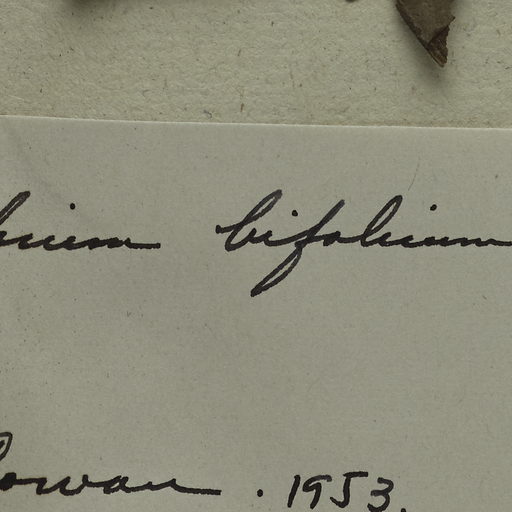 bifolium
owan . 1953.